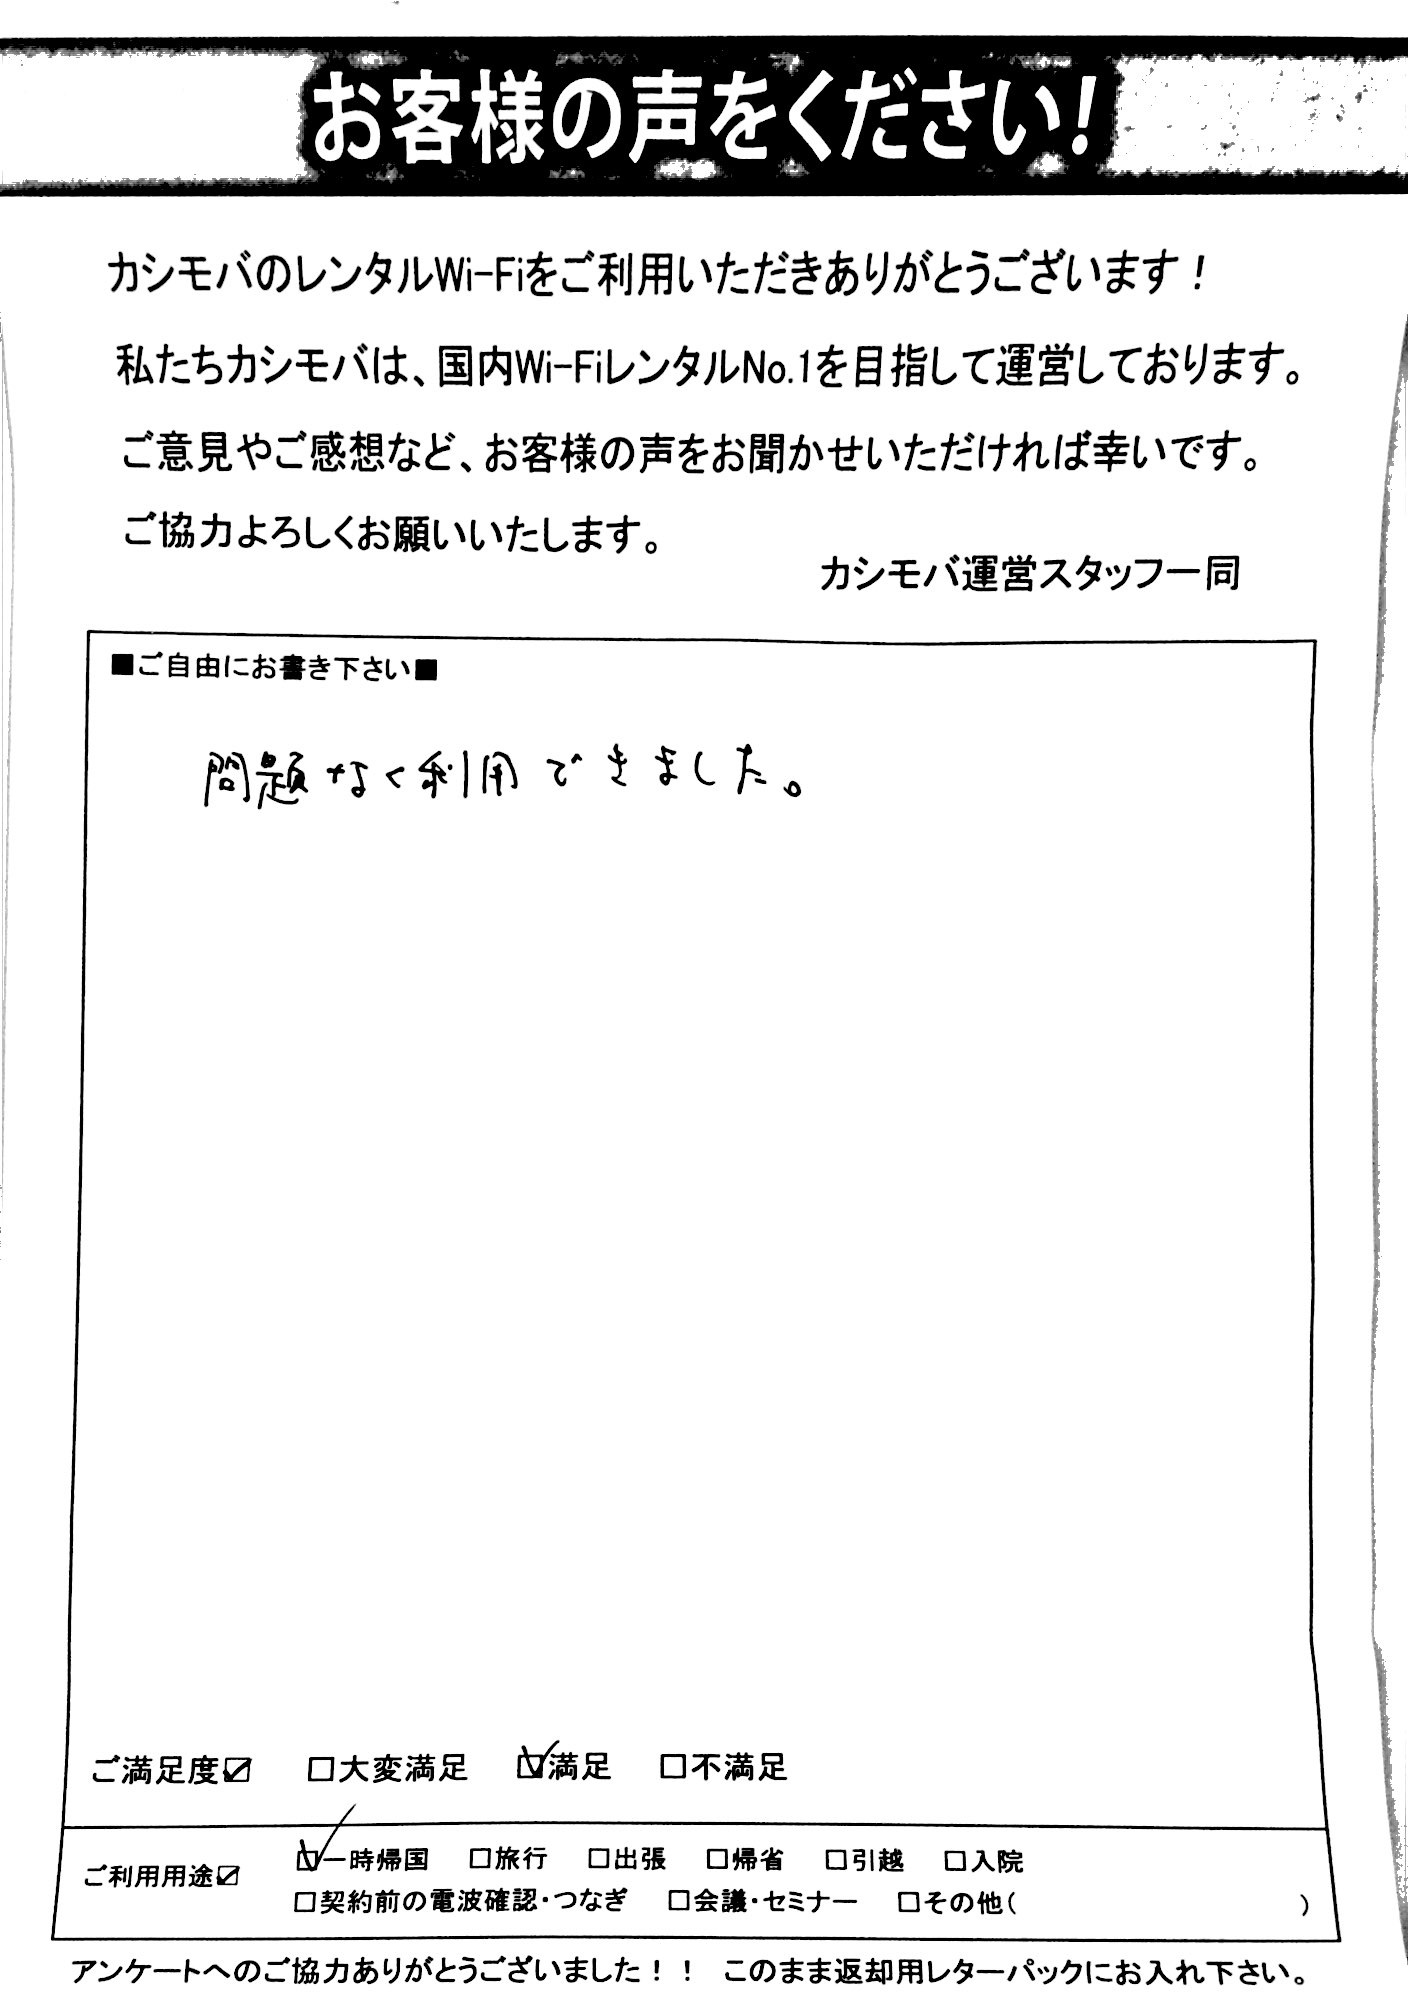 お客様の声をください!
カシモバのレンタルWi-Fiをご利用いただきありがとうございます!
私たちカシモバは、国内Wi-FiレンタルNo.1を目指して運営しております。
ご意見やご感想など、お客様の声をお聞かせいただければ幸いです。
ご協力よろしくお願いいたします。
カシモバ運営スタッフ一同
■ご自由にお書き下さい■
問題なく利用できました。
ご満足度☑ □大変満足 ☑満足 □不満足
ご利用用途☑ ☑一時帰国 □旅行 □出張 □帰省 □引越 □入院
□契約前の電波確認・つなぎ □会議・セミナー □その他( )
アンケートへのご協力ありがとうございました!! このまま返却用レターパックにお入れ下さい。